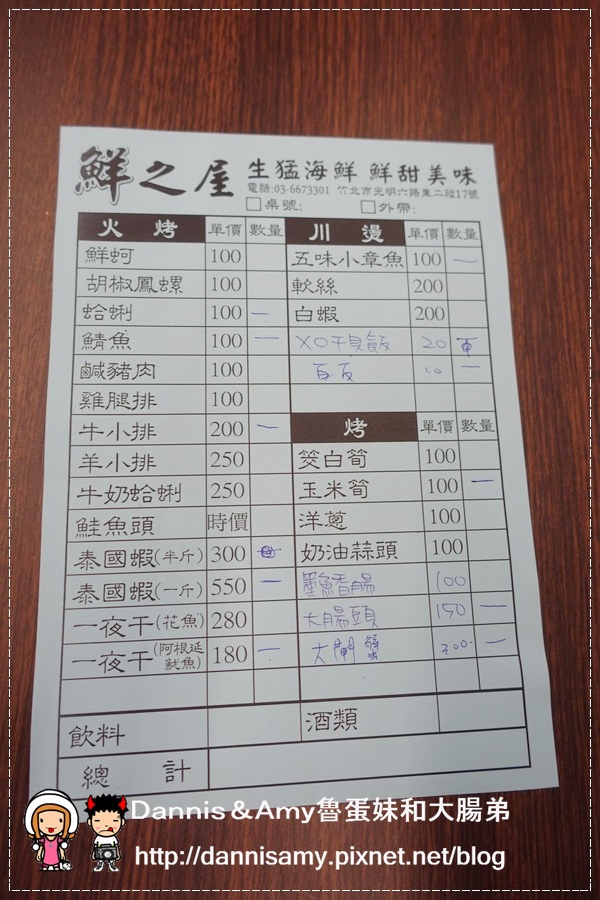 鮮之屋 生猛海鮮 鮮甜美味
電話:03-6673301 竹北市光明六路東二段17號
桌號: 外帶:
火烤 單價 數量
鮮蚵 100
胡椒鳳螺 100
蛤蜊 100 一
鯖魚 100 一
鹹豬肉 100
雞腿排 100
牛小排 200 一
羊小排 250
牛奶蛤蜊 250
鮭魚頭 時價
泰國蝦(半斤) 300
泰國蝦(一斤) 550 一
一夜干(花魚) 280
一夜干(阿根廷魷魚) 180 一
川燙 單價 數量
五味小章魚 100 一
軟絲 200
白蝦 200
XO干貝飯 20
10 一
烤 單價 數量
筊白筍 100
玉米筍 100 一
洋蔥 100
奶油蒜頭 100
墨魚香腸 100
大腸頭 150 一
大閘蟹 300. 一
飲料 酒類
總計
Dannis&Amy魯蛋妹和大腸弟
http://dannisamy.pixnet.net/blog